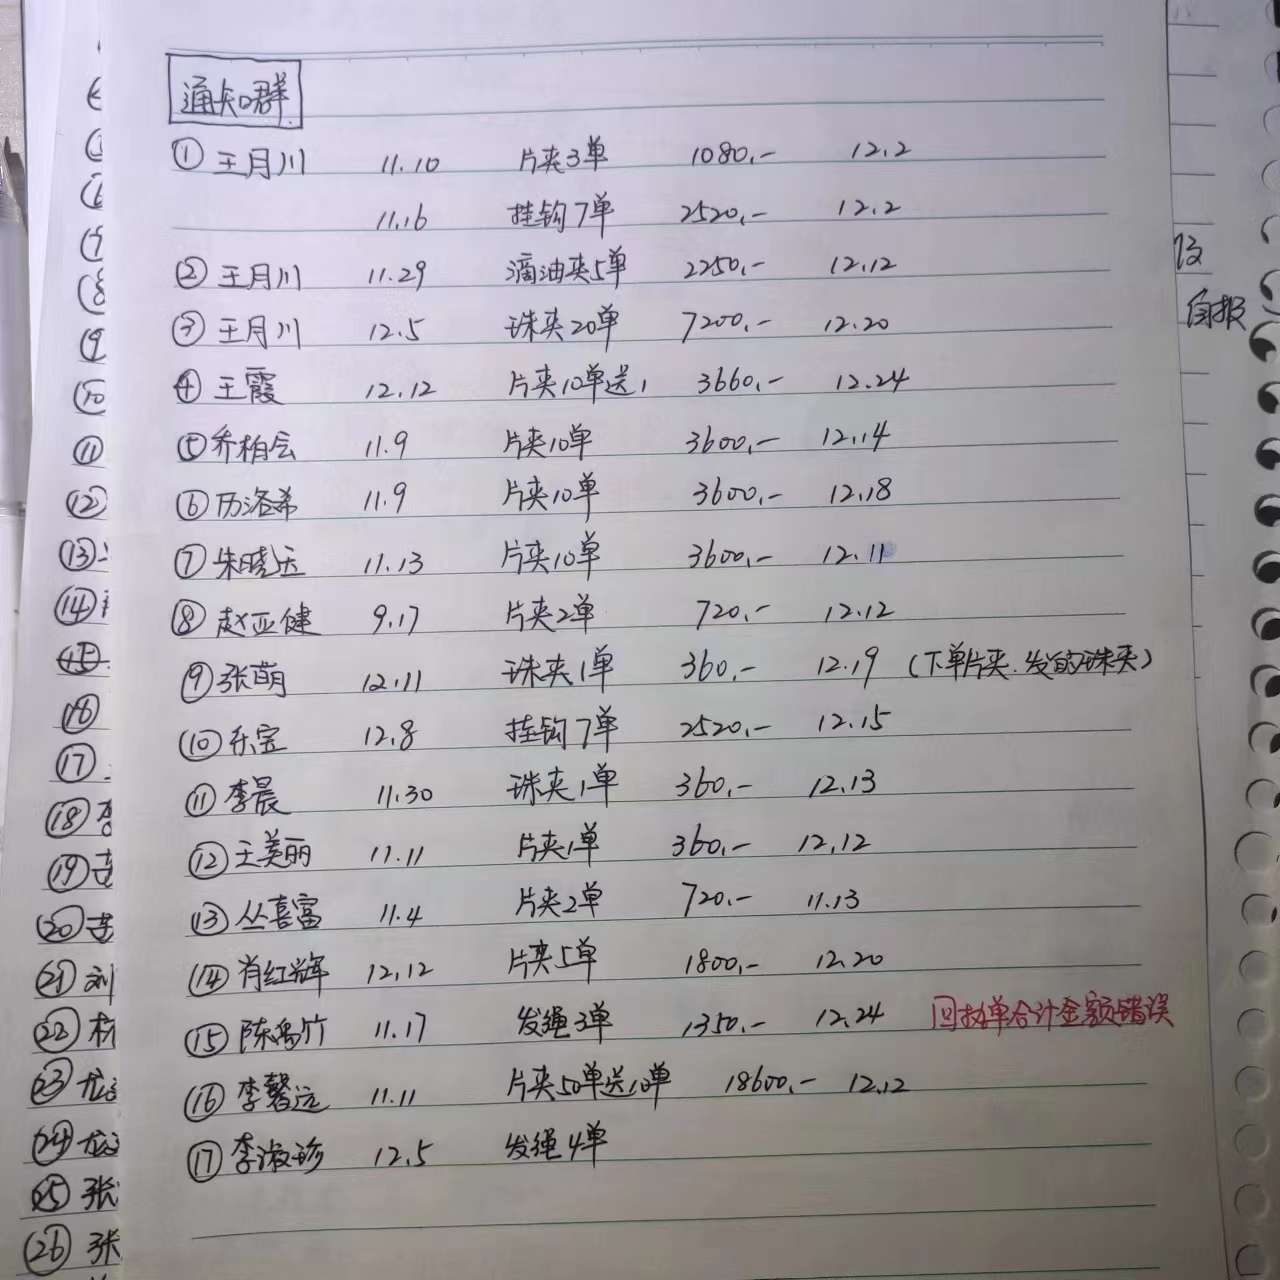 通知群
① 王月川 11.10 片夹3单 1080.- 12.2
11.16 挂钩7单 2520.- 12.2
② 王月川 11.29 滴油夹5单 2250.- 12.12
③ 王月川 12.5 珠夹20单 7200.- 12.20
④ 王霞 12.12 片夹10单送1 3660.- 12.24
⑤ 乔柏会 11.9 片夹10单 3600.- 12.14
⑥ 历洛希 11.9 片夹10单 3600.- 12.18
⑦ 朱晓玉 11.13 片夹10单 3600.- 12.11
⑧ 赵亚健 9.17 片夹2单 720.- 12.12
⑨ 张萌 12.11 珠夹1单 360.- 12.19 (下单片夹.发的珠夹)
⑩ 乐宝 12.8 挂钩7单 2520.- 12.15
⑪ 李晨 11.30 珠夹1单 360.- 12.13
⑫ 王美丽 11.11 片夹1单 360.- 12.12
⑬ 丛喜富 11.4 片夹2单 720.- 11.13
⑭ 肖红辉 12.12 片夹5单 1800.- 12.20
⑮ 陈禹竹 11.17 发绳3单 1350.- 12.24 回执单合计金额错误
⑯ 李馨远 11.11 片夹50单送10单 18600.- 12.12
⑰ 李淑珍 12.5 发绳4单
自报
⑨
⑩
⑪
⑫
⑬
⑭
⑮
⑯
⑰
⑱ 李
⑲
⑳
㉑ 刘
㉒
㉓
㉔
㉕ 张
㉖ 张